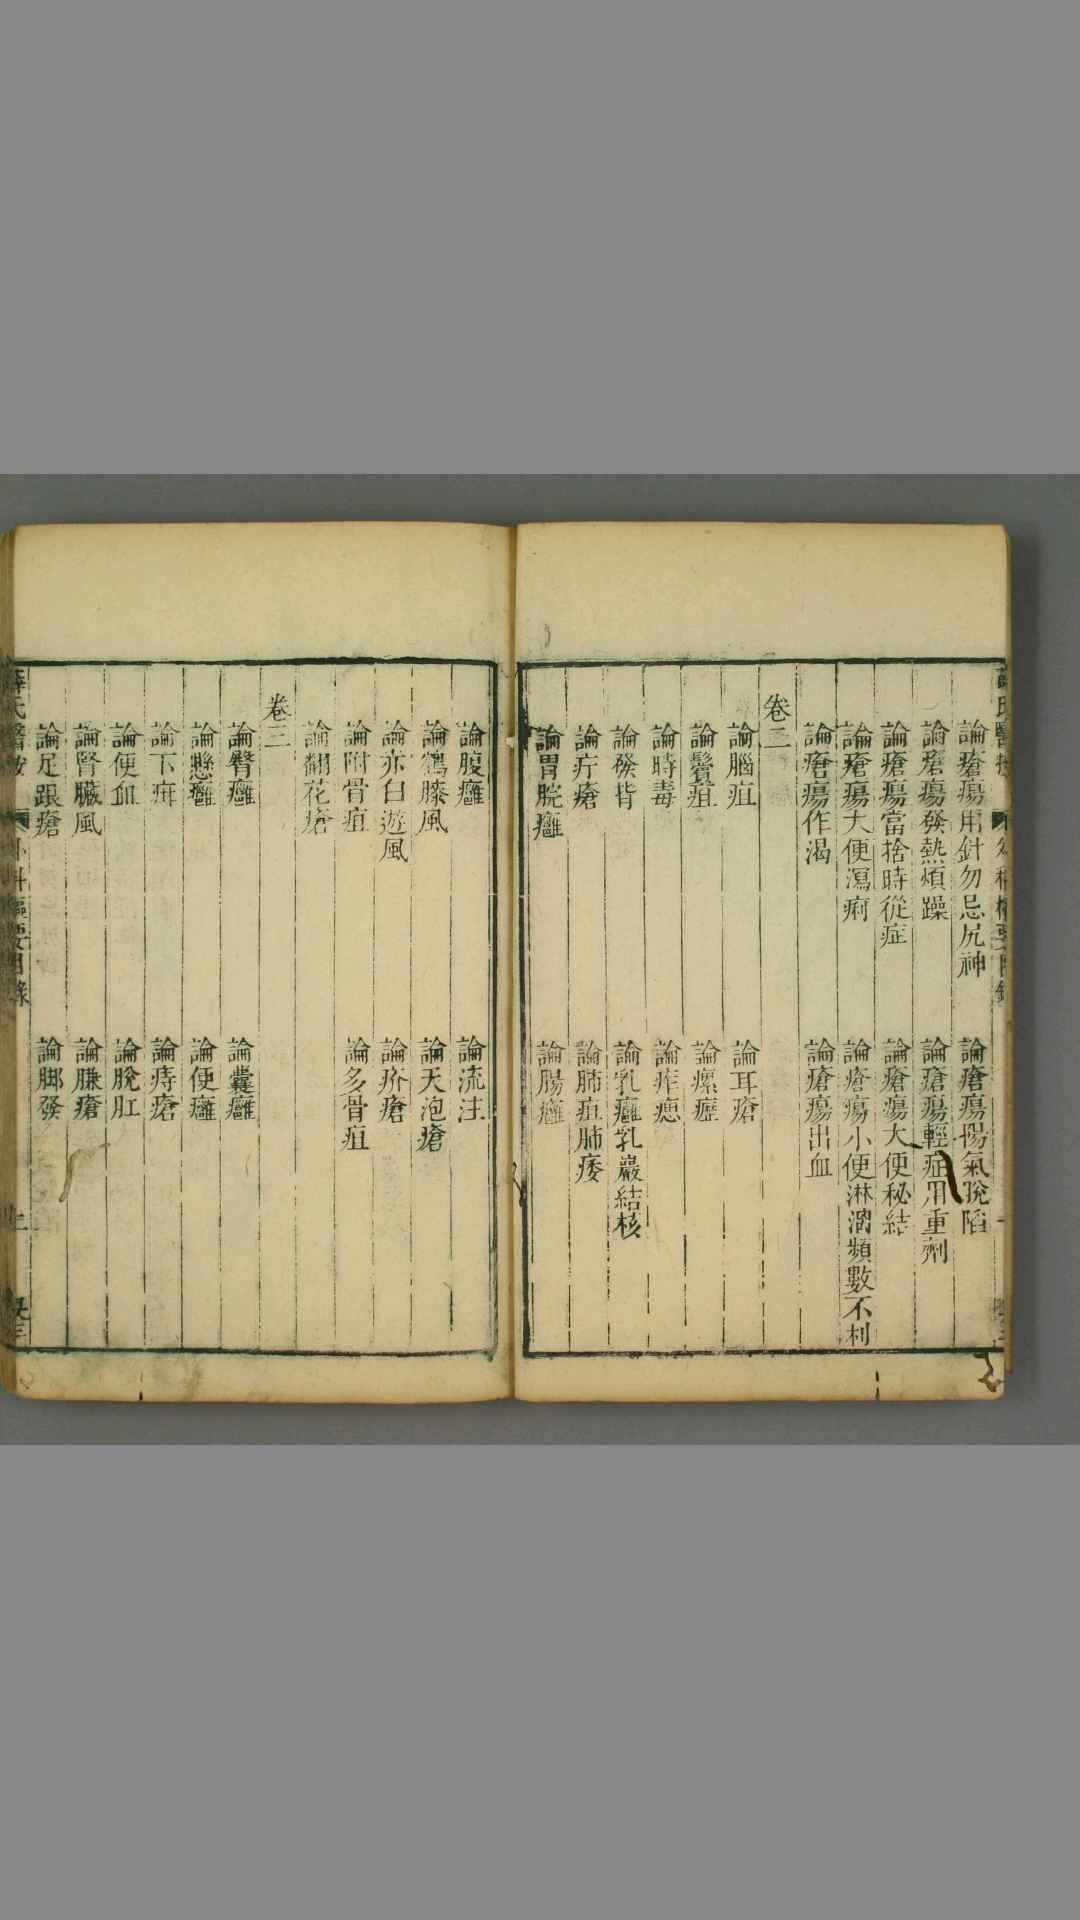 論瘡瘍用針勿忌尻神　論瘡瘍陽氣脫陷
論瘡瘍發熱煩躁　論瘡瘍輕症用重劑
論瘡瘍當捨時從症　論瘡瘍大便秘結
論瘡瘍大便瀉痢　論瘡瘍小便淋瀒頻數不利
論瘡瘍作渴　論瘡瘍出血
卷二
論腦疽　論耳瘡
論鬢疽　論瘰癧
論時毒　論痄腮
論發背　論乳癰乳巖結核
論疔瘡　論肺疽肺痿
論胃脘癰　論腸癰
論腹癰　論流注
論鶴膝風　論天泡瘡
論赤白遊風　論疥瘡
論附骨疽　論多骨疽
論翻花瘡
卷三
論臀癰　論囊癰
論懸癰　論便癰
論下疳　論痔瘡
論便血　論脫肛
論腎臟風　論臁瘡
論足跟瘡　論腳發
薛氏醫按　外科樞要目錄　二